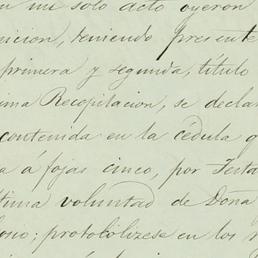 en mi solo acto oyeron
sicion, teniendo presente
primera y segunda, título
ima Recopilacion, se declar
contenida en la cédula q
a á fojas cinco, por Testa
tima voluntad de Doña
losio; protocolizese en los r